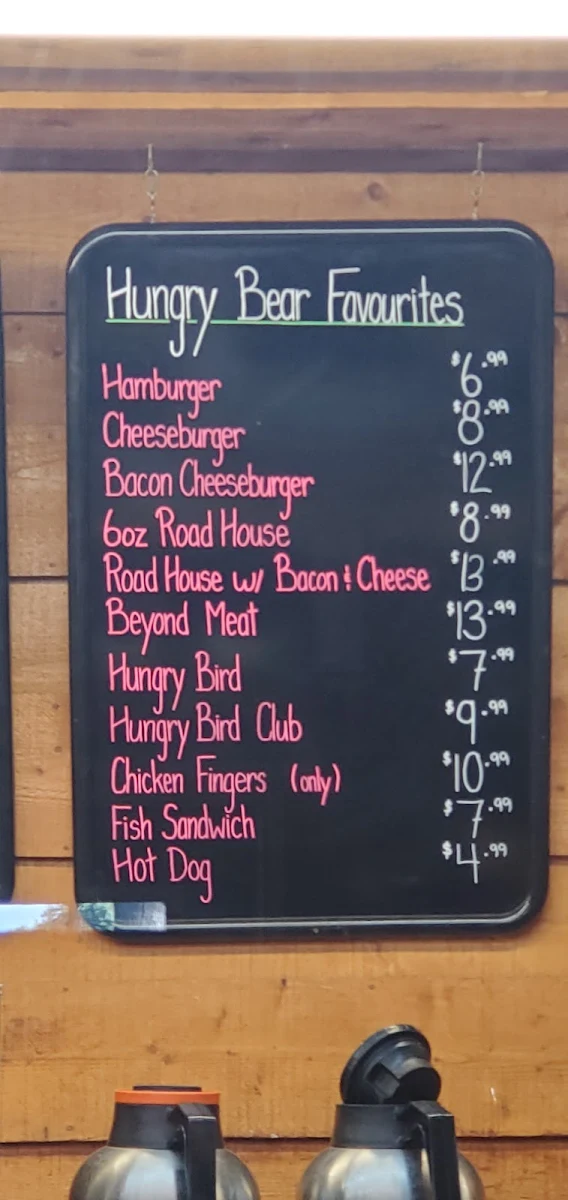 Hungry Bear Favourites
Hamburger $6.99
Cheeseburger $8.99
Bacon Cheeseburger $12.99
6oz Road House $8.99
Road House w/ Bacon & Cheese $13.99
Beyond Meat $13.99
Hungry Bird $7.99
Hungry Bird Club $9.99
Chicken Fingers (only) $10.99
Fish Sandwich $7.99
Hot Dog $4.99